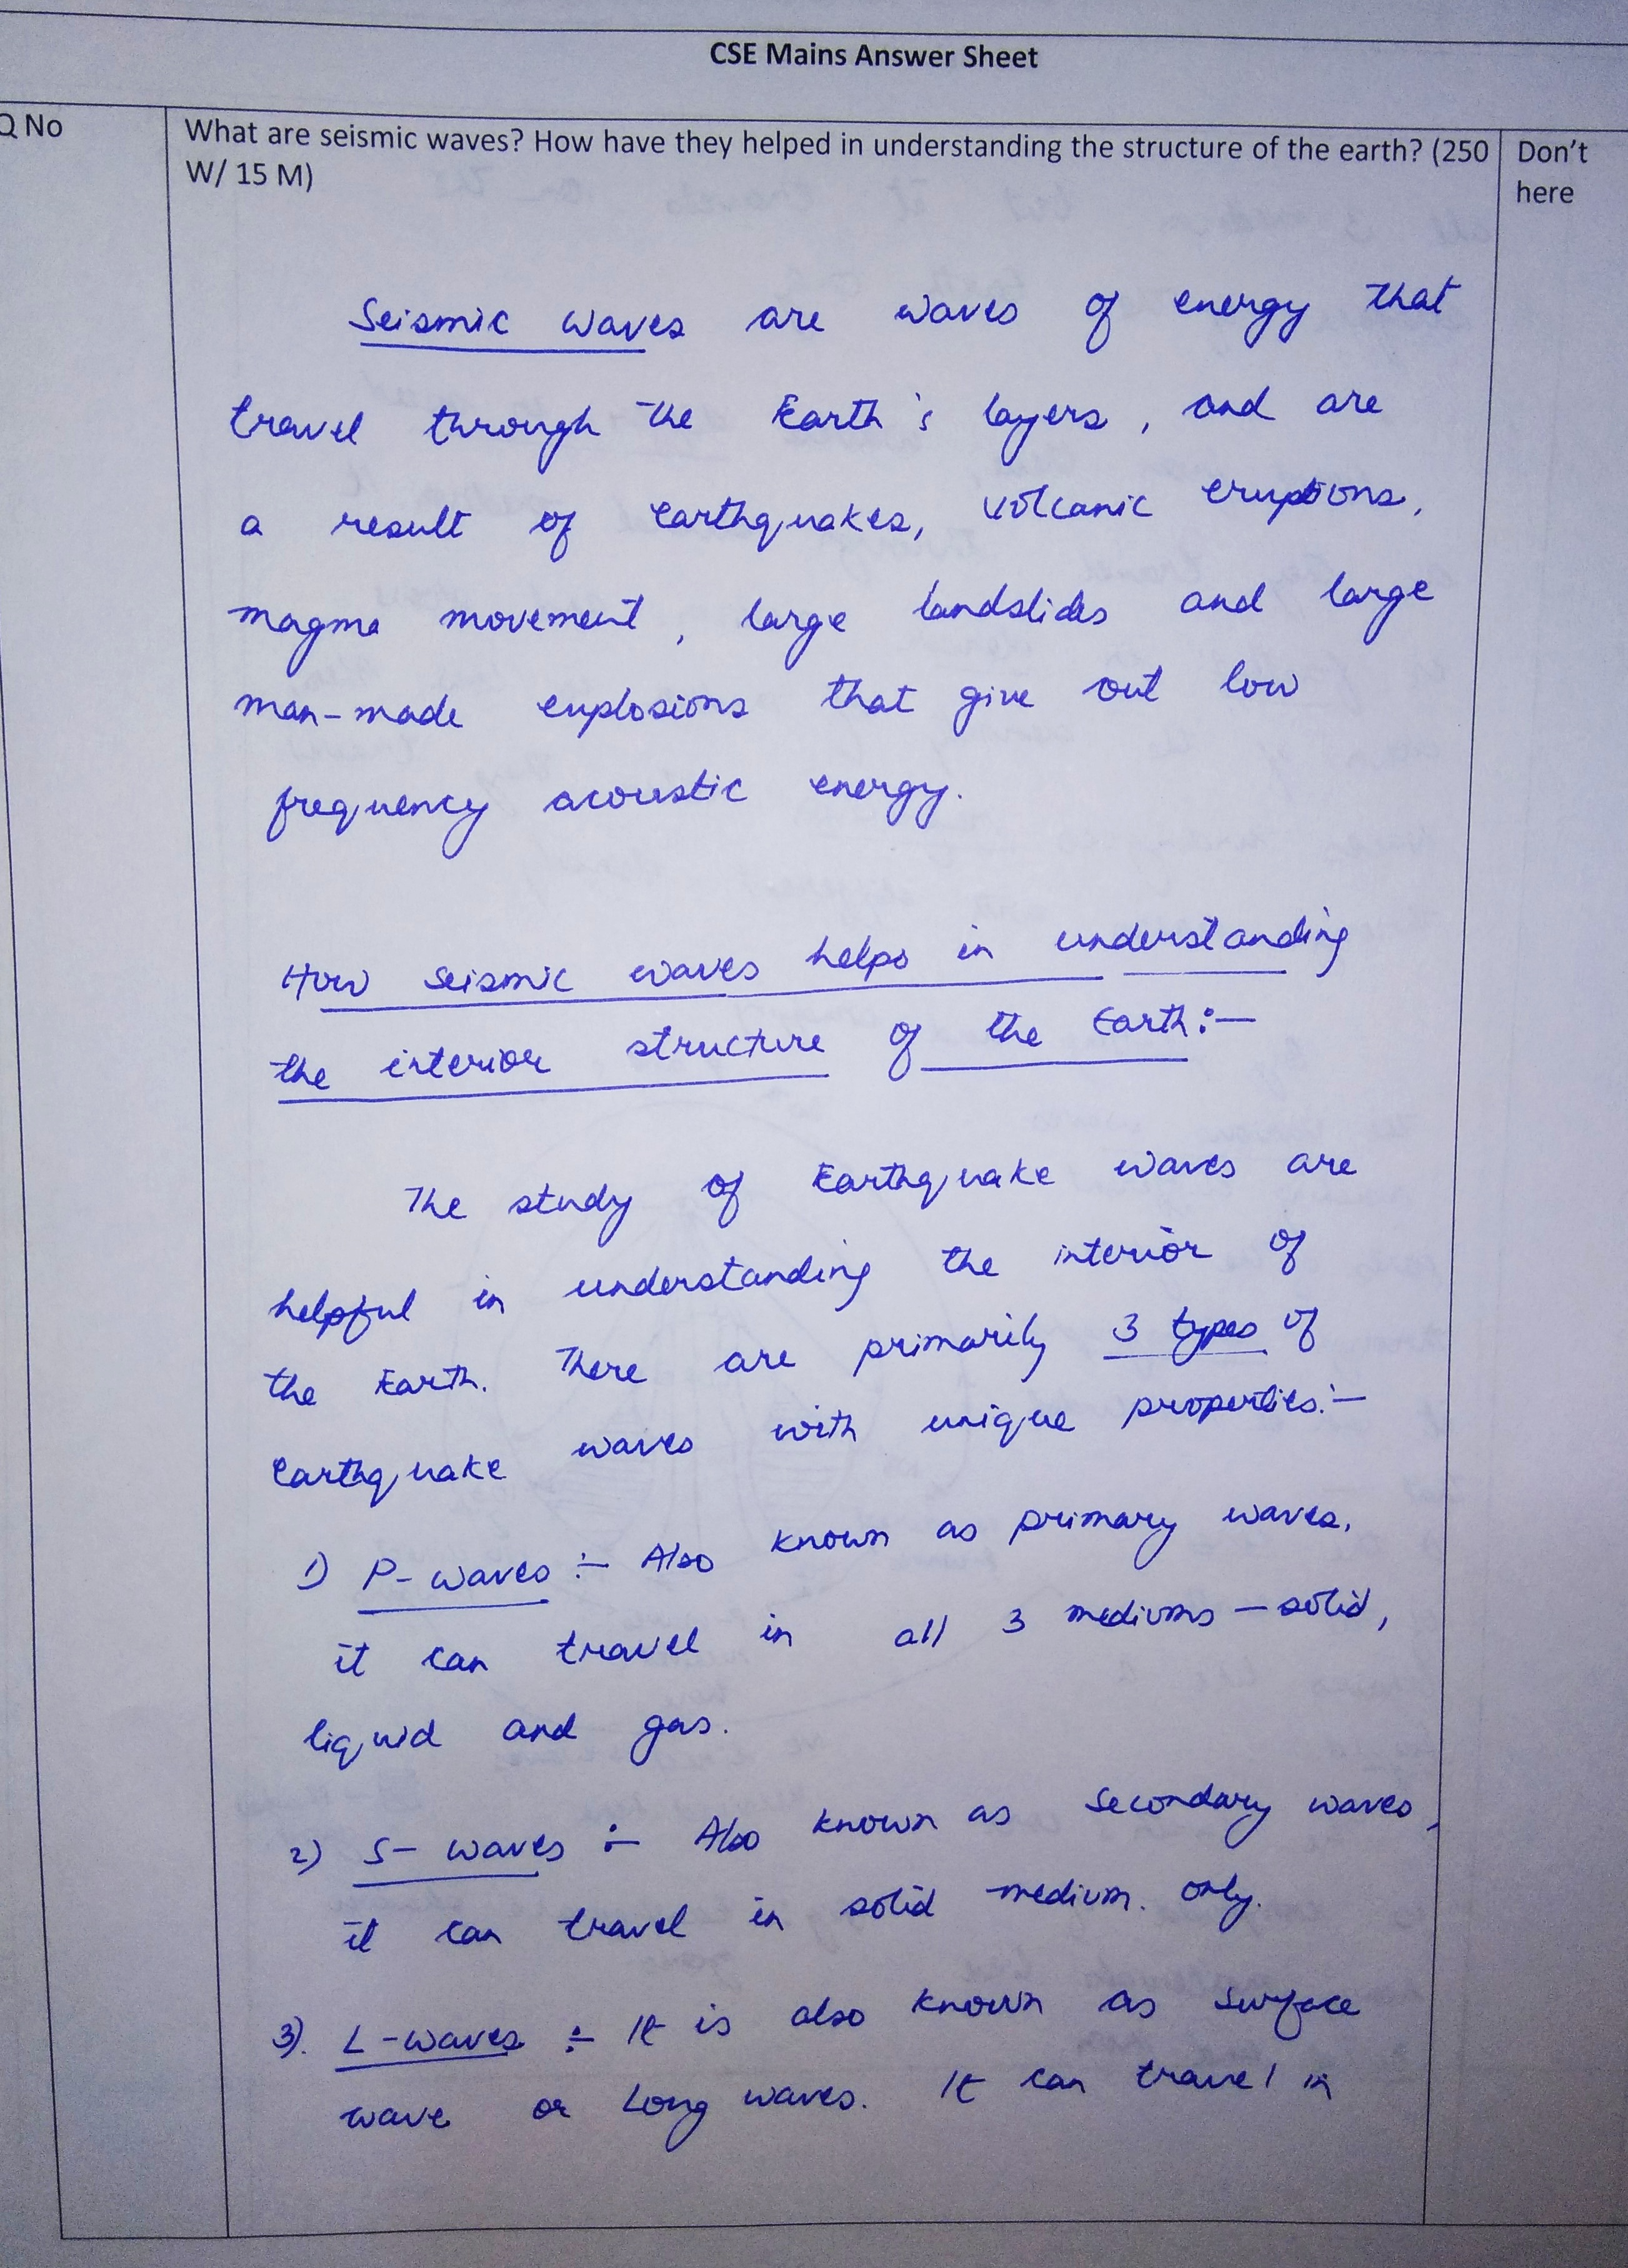 CSE Mains Answer Sheet
Q No
What are seismic waves? How have they helped in understanding the structure of the earth? (250
W/ 15 M)
Don't
here
Seismic waves are waves of energy that
travel through the Earth's layers, and are
a result of earthquakes, volcanic eruptions,
magma movement, large landslides and large
man-made explosions that give out low
frequency acoustic energy.
How seismic waves helps in understanding
the interior structure of the Earth:-
The study of Earthquake waves are
helpful in understanding the interior of
the Earth. There are primarily 3 types of
earthquake waves with unique properties:-
1) P-waves :- Also known as primary waves,
it can travel in all 3 mediums - solid,
liquid and gas.
2) S-waves :- Also known as secondary waves,
it can travel in solid medium. only.
3). L-waves :- It is also known as surface
wave or Long waves. It can travel in